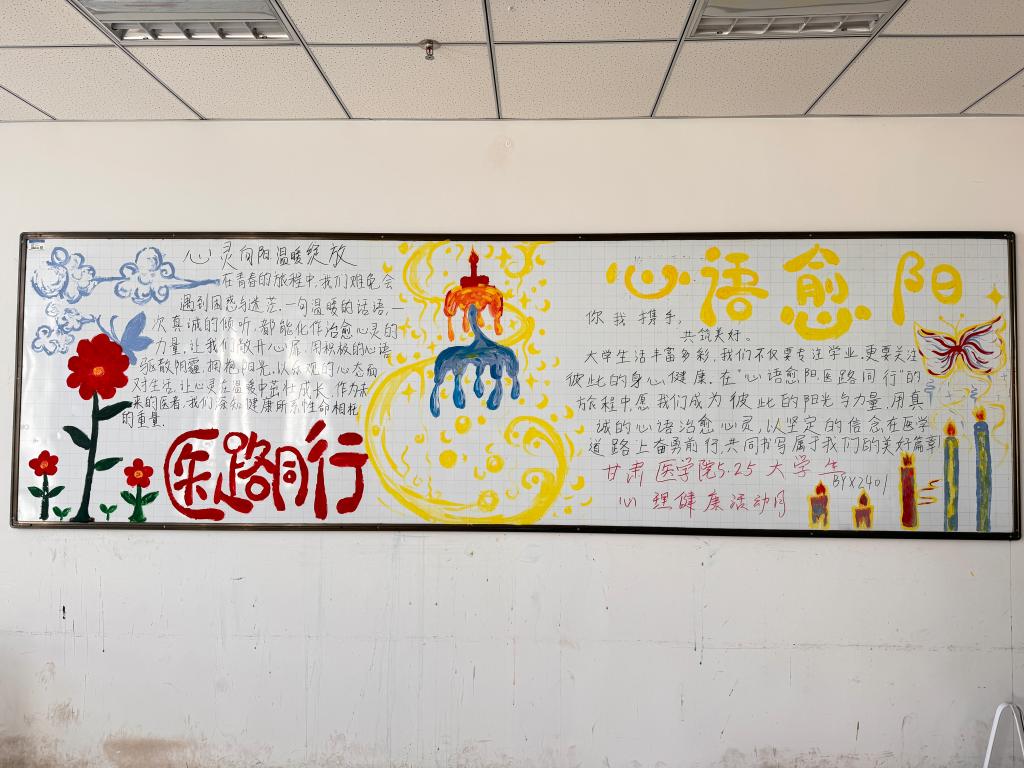 心灵向阳温暖绽放
在青春的旅程中,我们难免会
遇到困惑与迷茫.一句温暖的话语,一
次真诚的倾听,都能化作治愈心灵的
力量,让我们敞开心扉,用积极的心语
驱散阴霾,拥抱阳光,以乐观的心态面
对生活,让心灵在温暖中茁壮成长.作为未
来的医者,我们深知健康所系,性命相托
的重量.
医路同行
心语愈阳
你我携手,
共筑美好。
大学生活丰富多彩,我们不仅要专注学业,更要关注
彼此的身心健康.在"心语愈阳,医路同行"的
旅程中,愿我们成为彼此的阳光与力量,用真
诚的心语治愈心灵,以坚定的信念在医学
道路上奋勇前行,共同书写属于我们的美好篇章!
甘肃医学院5.25大学生
心理健康活动月
BYX2401